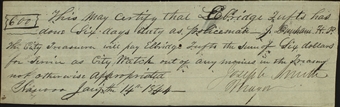 600
This May Certify that Elbridge Tufts has
done Six days duty as Policeman J. Dunham H. P.
the City Treasurer will pay Elbridge Tufts the Sum of Six dollars
for Service as City Watch out of any monies in the Treasury
not otherwise Appropriated
Nauvoo Jany 14th 1844 Joseph Smith
Mayor